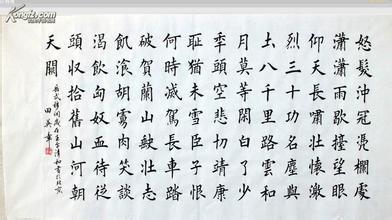 怒髮沖冠憑欄處
瀟瀟雨歇擡望眼
仰天長嘯壯懷激
烈三十功名塵與
土八千里路雲和
月莫等閑白了少
年頭空悲切靖康
恥猶未雪臣子恨
何時滅駕長車踏
破賀蘭山缺壯志
飢湌胡虜肉笑談
渴飲匈奴血待從
頭收拾舊山河朝
天闕
岳武穆詞歲在清和書於北京
田英章